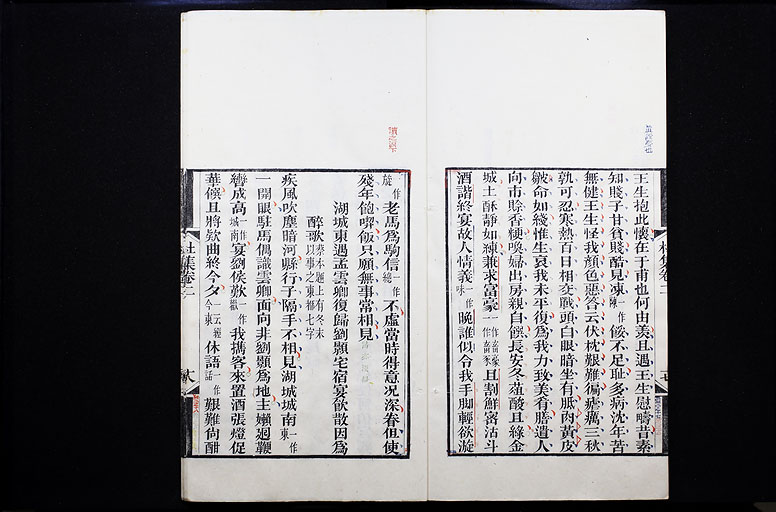 王生抱此懷在于甫也何由羨且遇王生慰疇昔素
知賤子甘貧賤酷見凍一作餒不足恥多病沈年苦
無健王生怪我顏色惡答云伏枕艱難徧瘧癘三秋
孰可忍寒熱百日相交戰頭白眼暗坐有胝肉黃皮
皺命如綫惟生哀我未平復為我力致美肴膳遣人
向市賒香粳喚婦出房親自饌長安冬葅酸且綠金
城土酥靜如練兼求富豪一作且割鮮密沽斗
酒諧終宴故人情義一作味晚誰似令我手腳輕欲漩
一作旋老馬為駒信一作總不虛當時得意況深眷但使
殘年飽喫飯只願無事常相見
湖城東遇孟雲卿復歸劉顥宅宿宴飲散因為
醉歌蔡本題上有冬末以事之東都七字
疾風吹塵暗河縣行子隔手不相見湖城城南一作東
一開眼駐馬偶識雲卿面向非劉顥為地主嬾迴鞭
轡成高一作城南宴劉侯歎一作歡我攜客來置酒張燈促
華饌且將款曲終今夕一云今東休語一作話艱難尚酣
杜集卷二
杜集卷二